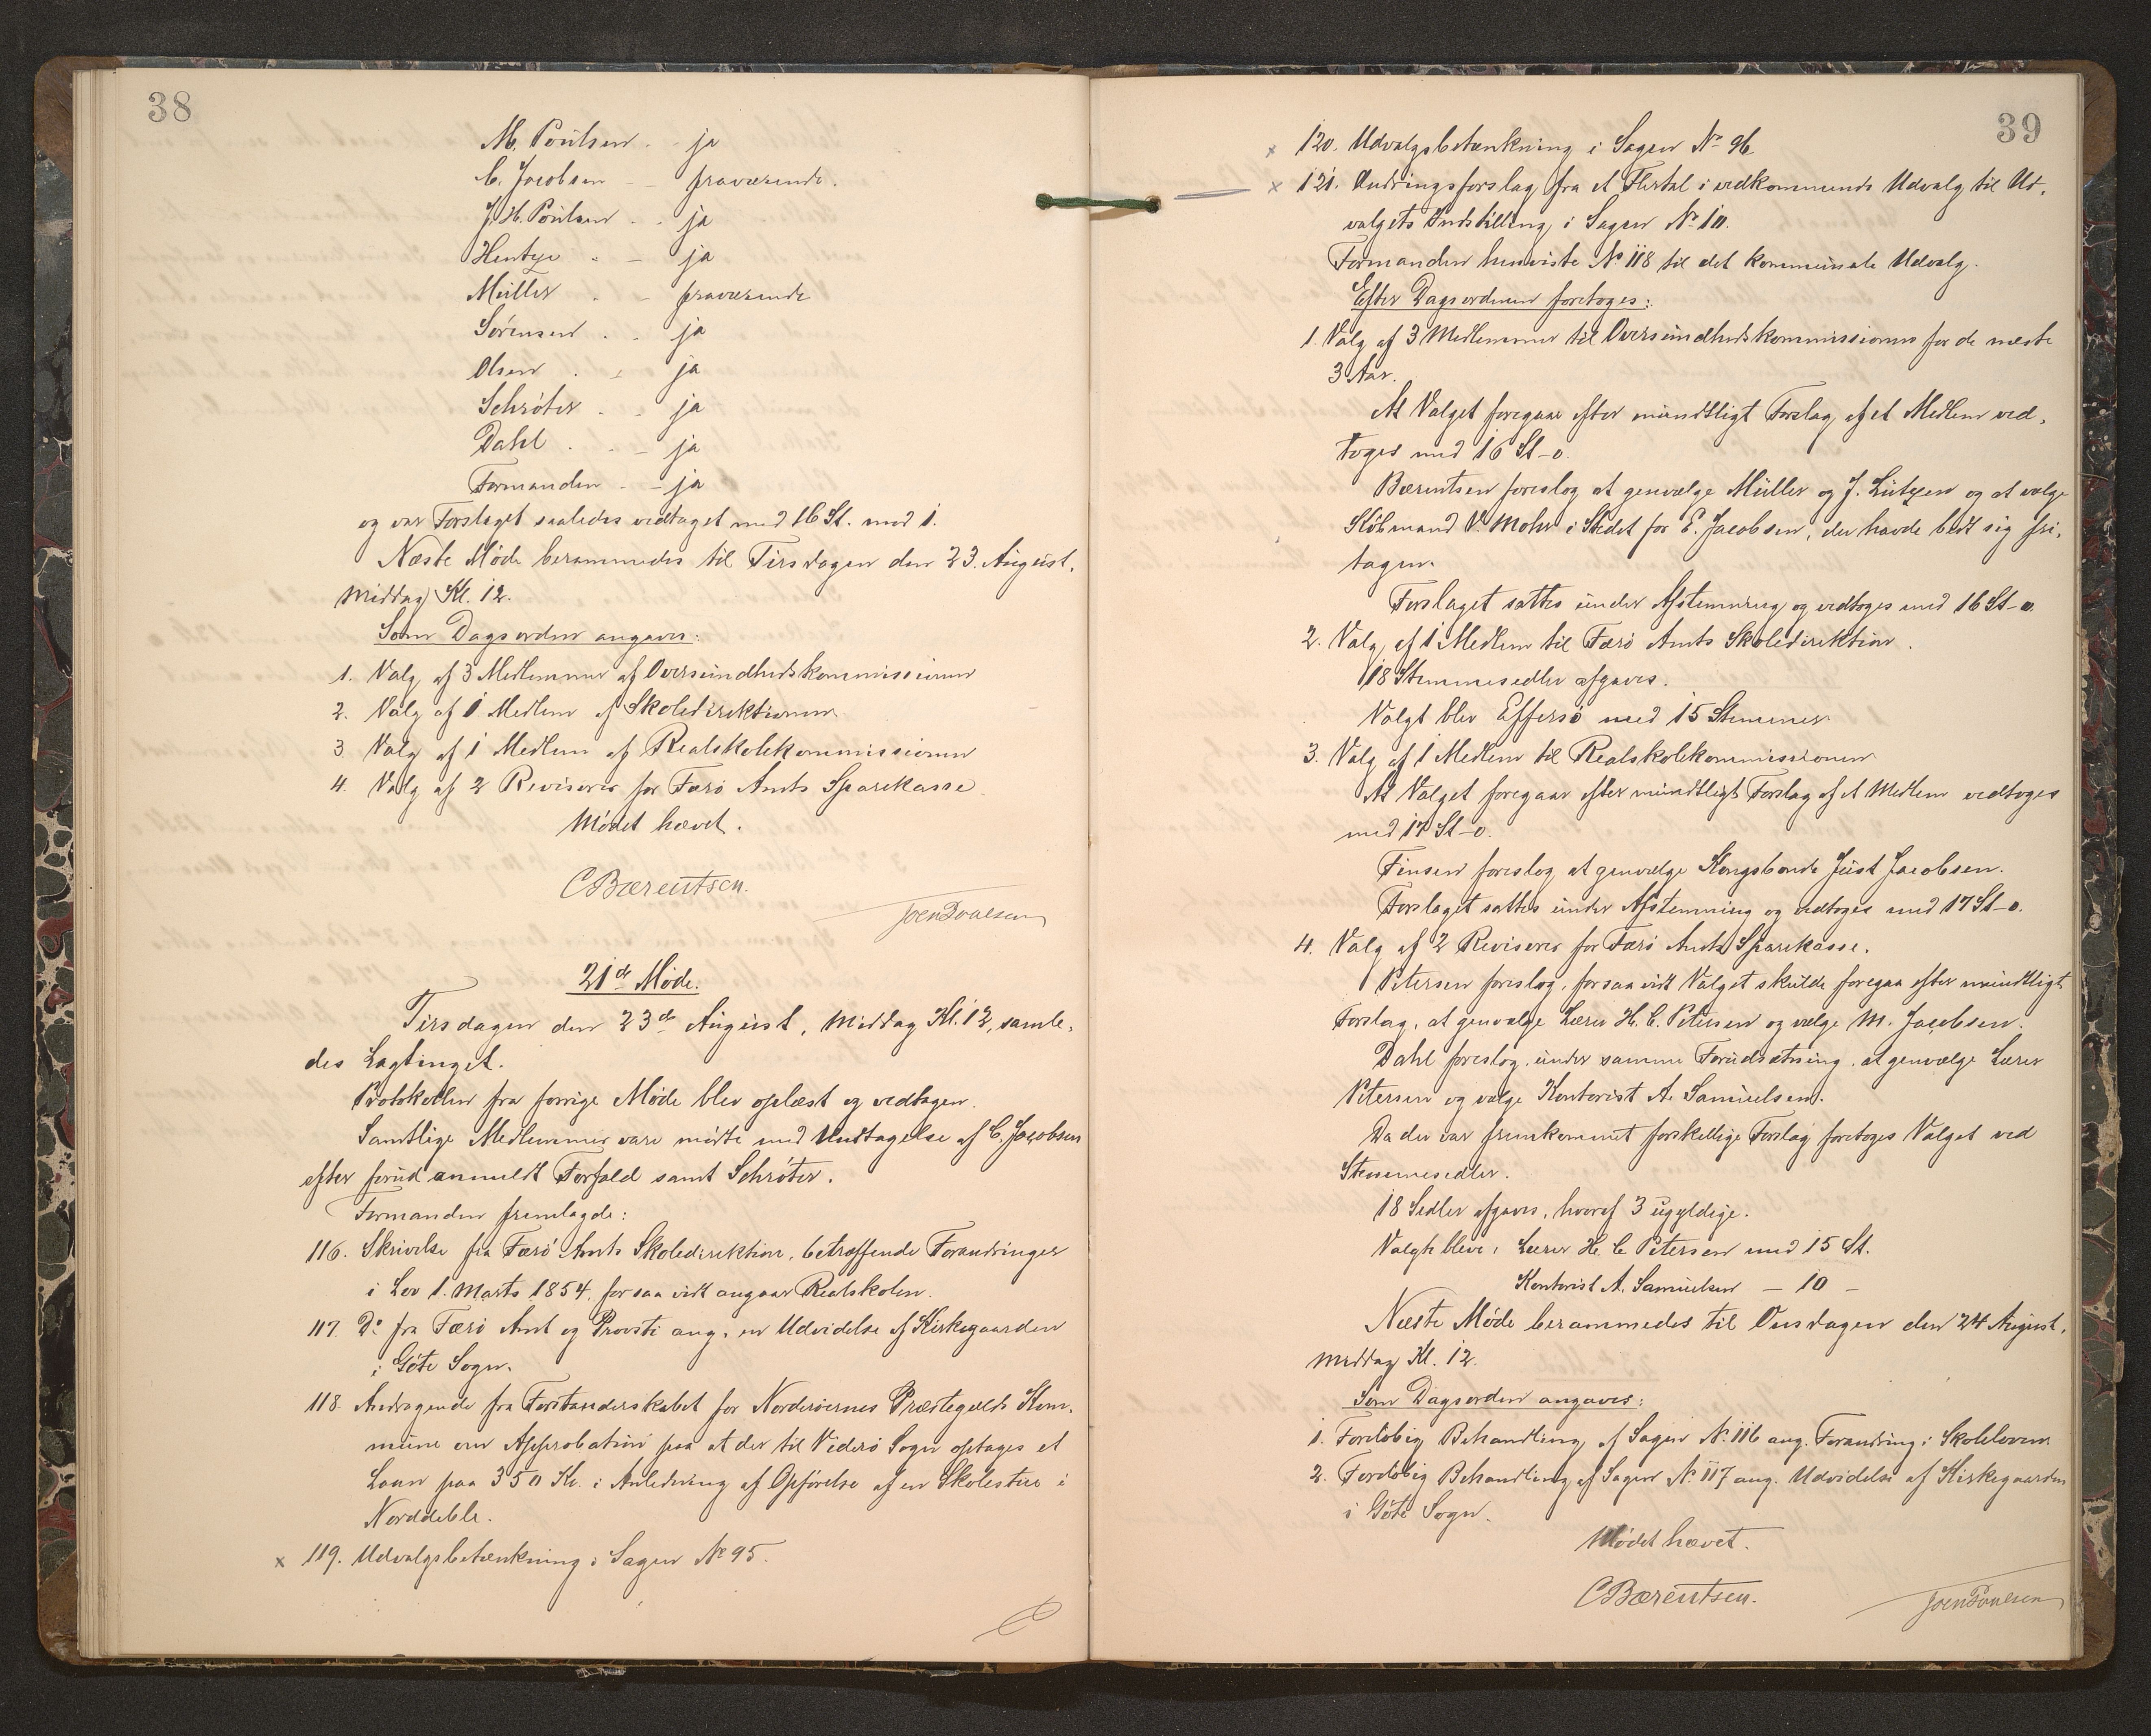 38
M. Poulsen - ja
C. Jacobsen - - fraværende.
J. H. Poulsen - - ja
Hentze - - ja
Müller - - fraværende
Sørensen - - ja
Olsen - - ja
Schrøter - - ja
Dahl - - ja
Formanden - - ja
og var Forslaget saaledes vedtaget med 16 St. mod 1.
Næste Møde berammedes til Tirsdagen den 23. August,
Middag Kl. 12.
Som Dagsorden angaves:
1. Valg af 3 Medlemmer af Oversundhedskommissionen
2. Valg af 1 Medlem af Skoledirektionen
3. Valg af 1 Medlem af Realskolekommissionen
4. Valg af 2 Revisorer for Færø Amts Sparekasse
Mødet hævet.
C Bærentsen.
Joen Poulsen
21de Møde.
Tirsdagen den 23de August, Middag Kl. 12, samle-
des Lagtinget.
Protokollen fra forrige Møde blev oplæst og vedtagen.
Samtlige Medlemmer vare mødte med Undtagelse af C. Jacobsen
efter forud anmeldt Forfald samt Schrøter.
Formanden fremlagde:
116. Skrivelse fra Færø Amts Skoledirektion, betræffende Forandringer
i Lov 1. Marts 1854, forsaavidt angaar Realskolen.
117. Do fra Færø Amt og Provsti ang. en Udvidelse af Kirkegaarden
i Gøte Sogn.
118. Andragende fra Forstanderskabet for Norderøernes Præstegælds Kom-
mune om Approbation paa at der til Viderø Sogn optages et
Laan paa 350 Kr. i Anledning af Opførelse af en Skolestue i
Norddeble.
x 119. Udvalgsbetænkning i Sagen No 95.
39
x 120. Udvalgsbetænkning i Sagen No 96
x 121. Ændringsforslag fra et Flertal i vedkommende Udvalg til Ud-
valgets Indstilling i Sagen No 10.
Formanden henviste No 118 til det kommunale Udvalg.
Efter Dagsordenen foretoges:
1. Valg af 3 Medlemmer til Oversundhedskommissionen for de næste
3 Aar.
At Valget foregaar efter mundtligt Forslag af et Medlem ved-
toges med 16 St-0.
Bærentsen foreslog at genvælge Müller og J. Lützen og at vælge
Købmand V. Mohr i Stedet for E. Jacobsen, der havde bedt sig fri-
tagen.
Forslaget sattes under Afstemning og vedtoges med 16 St-0.
2. Valg af 1 Medlem til Færø Amts Skoledirektion.
18 Stemmesedler afgaves.
Valgt blev Effersø med 15 Stemmer
3. Valg af 1 Medlem til Realskolekommissionen
At Valget foregaar efter mundtligt Forslag af et Medlem vedtoges
med 17 St-0.
Finsen foreslog at genvælge Kongsbonde Just Jacobsen.
Forslaget sattes under Afstemning og vedtoges med 17 St-0.
4. Valg af 2 Revisorer for Færø Amts Sparekasse.
Petersen foreslog, forsaavidt Valget skulde foregaa efter mundtligt
Forslag, at genvælge Lærer H. C. Petersen og vælge M. Jacobsen.
Dahl foreslog, under samme Forudsætning, at genvælge Lærer
Petersen og vælge Kontorist A. Samuelsen.
Da der var fremkommet forskellige Forslag foretoges Valget ved
Stemmesedler.
18 Sedler afgaves, hvoraf 3 ugyldige.
Valgte bleve, Lærer H. C. Petersen med 15 St.
Kontorist A. Samuelsen - 10 -
Næste Møde berammedes til Onsdagen den 24 August,
Middag Kl. 12.
Som Dagsorden angaves:
1. Foreløbig Behandling af Sagen No 116 ang. Forandring i Skoleloven
2. Foreløbig Behandling af Sagen No 117 ang. Udvidelse af Kirkegaarden
i Gøte Sogn.
Mødet hævet.
C Bærentsen.
Joen Poulsen